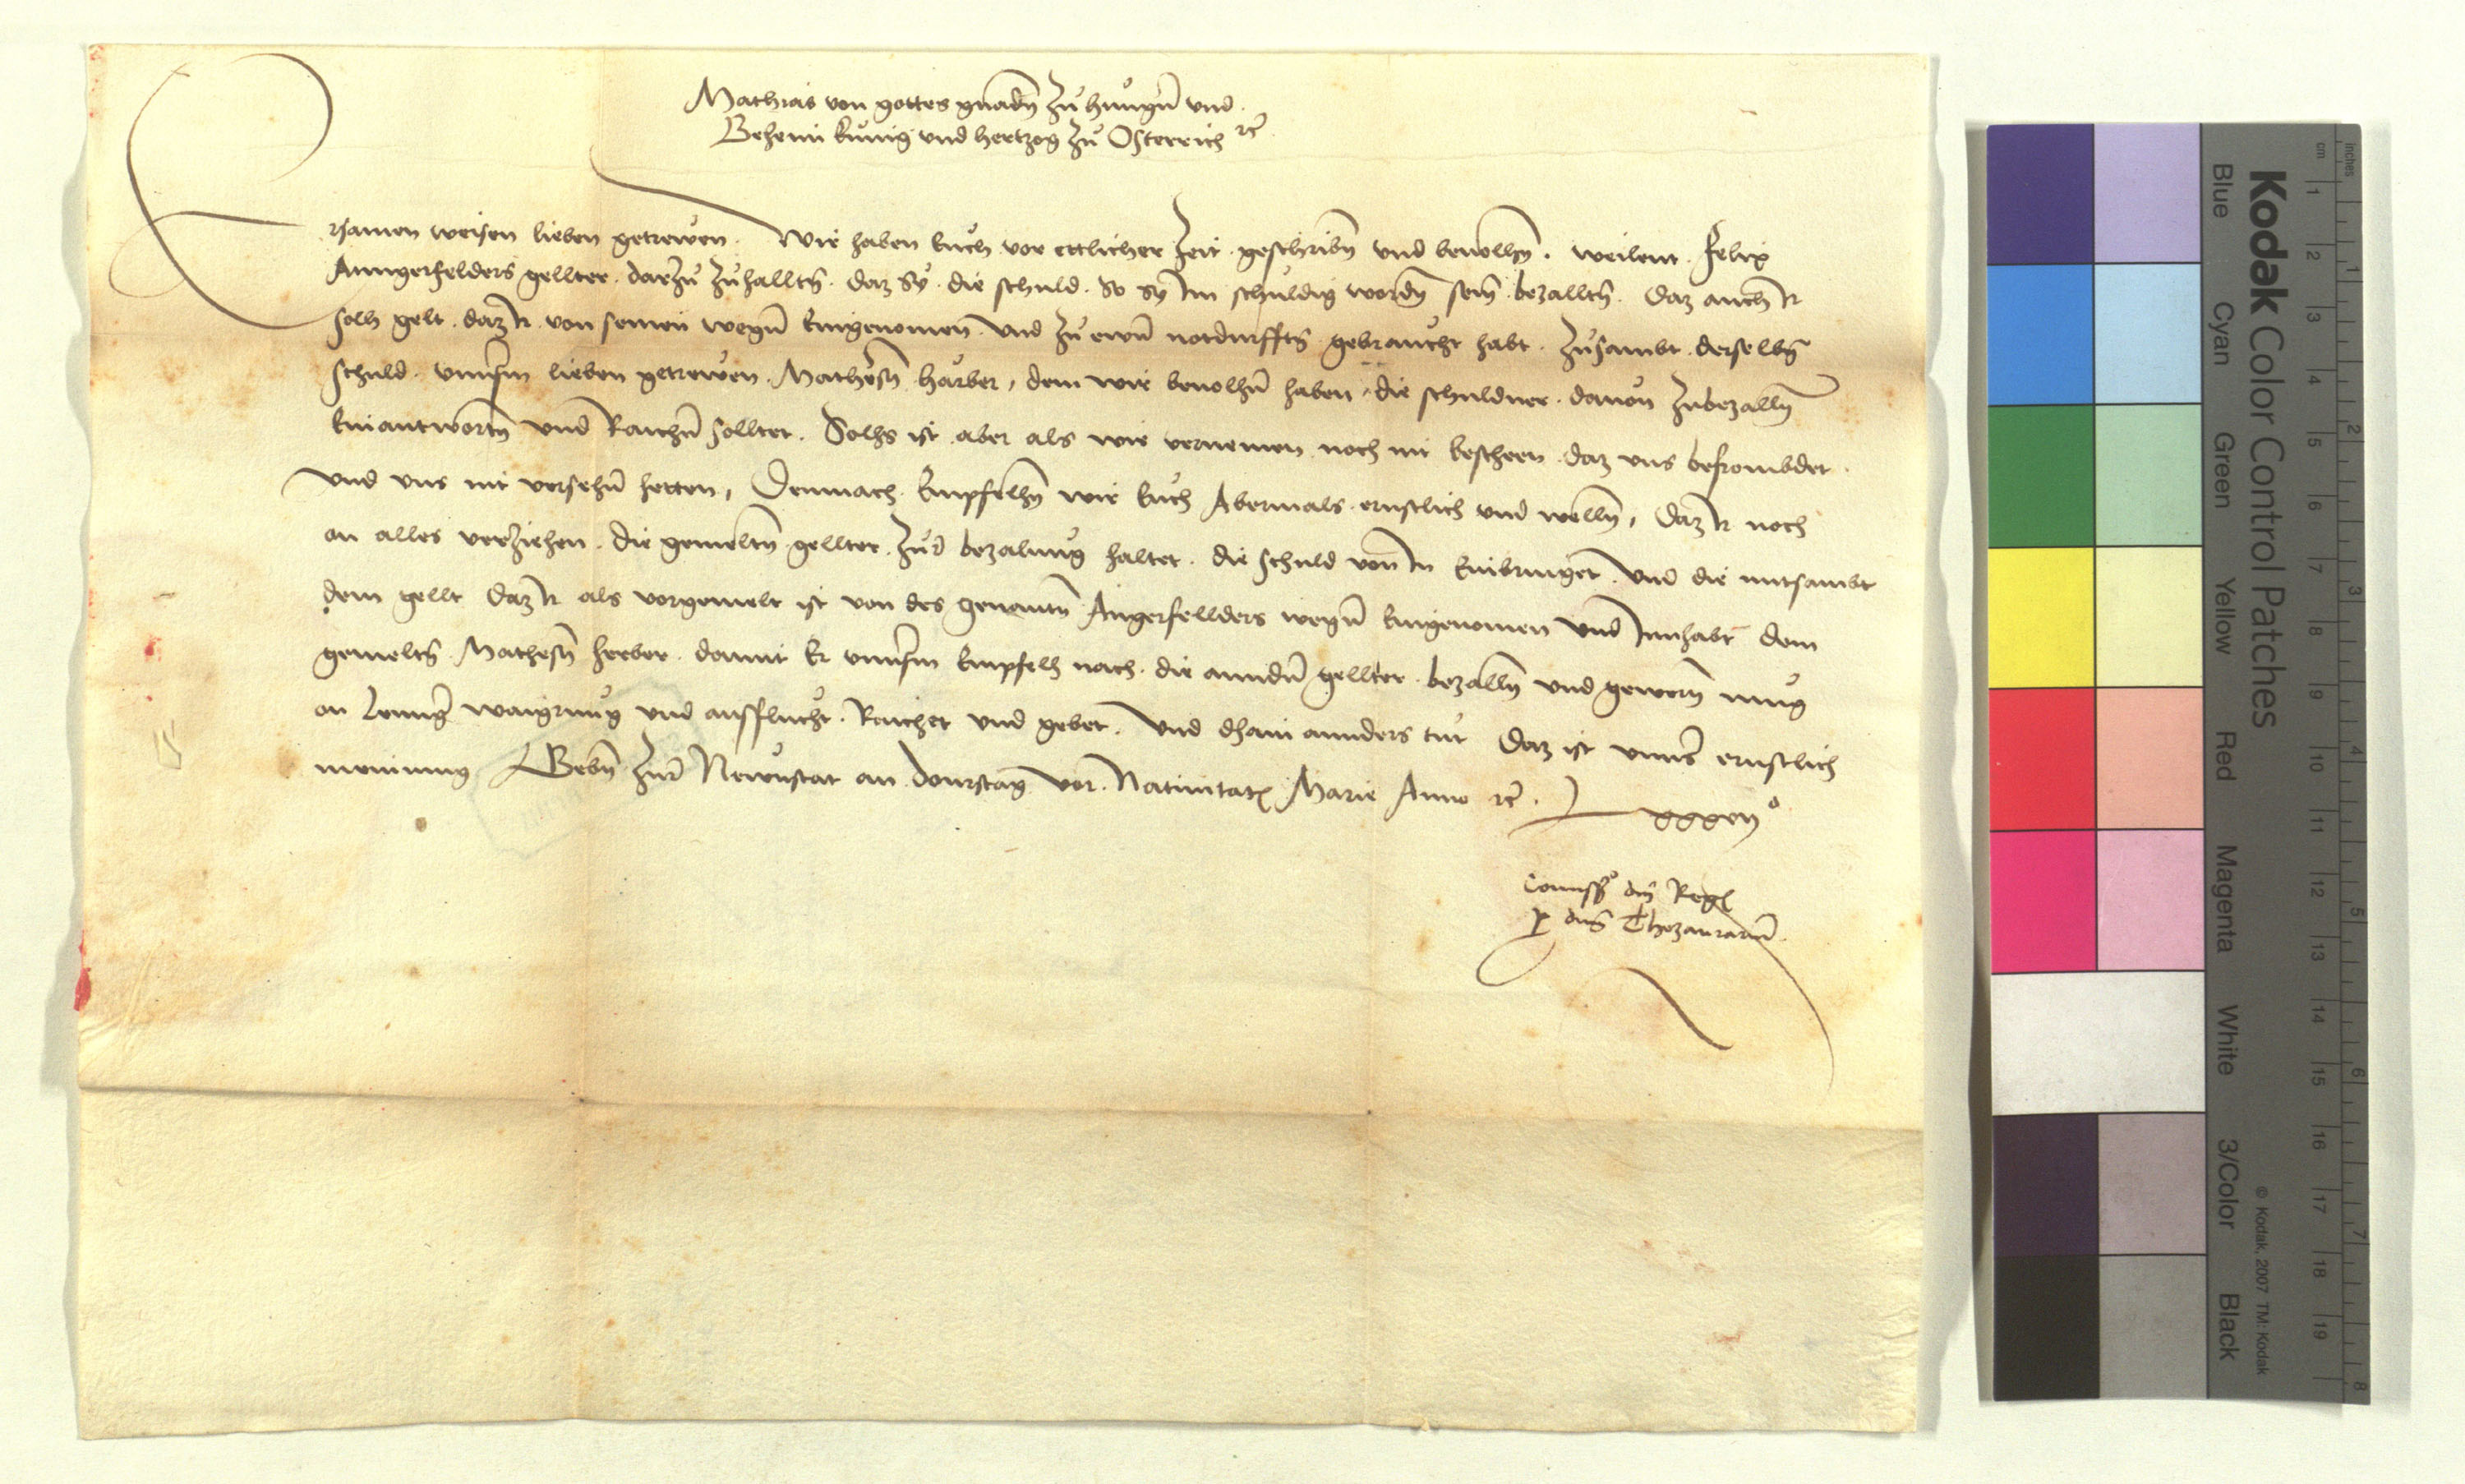 Mathias von gottes gnadn zu hungern und
Behem kunig und hertzog zu Osterreich etc
Ersamen weisen lieben getrewen. Wir haben Euch vor ettlicher Zeit geschribn und bevolhn. weilent Felix
Anngerfelders gellter darzu zuhalltn. daz Sy die schuld. so sy Im schuldig wordn sein bezalltn. Daz auch Ir
solh gelt. daz Ir von seinen wegen Eingenomen und zu ewrn notdurfftn gebraucht habt. Zusambt derselbn
schuld. unnserm lieben getrewen Mathesn harber, dem wir bevolhn haben, die schuldner davon zubezalln
Einantwortn und Raichen solltet. Solhs ist aber als wir vernemen noch nit bescheen. daz uns befrombdet
und uns nit versehen hetten, Demnach Empfelhn wir Euch Abermals ernstlich und welln, daz Ir noch
on alles verziehen. die gemeltn gellter. zur bezalung haltet. die schuld von In Einbringet. und die mitsambt
dem gellt Daz Ir als vorgemelt ist von des genantn Angerfellders wegen Eingenomen und Innhabt dem
gemeltn Mathesn herber. damit Er unnserm Empfelh nach. die anndern gellter bezalln und gewern mug
on Lennger waigrung und ausflucht. Raichet und gebet. Und dhain annders tut Daz ist unnser ernstlich
meinung Gebn zur Newnstat an Donrstag vor Nativitatis Marie Anno etc. Lxxxvii°
Comissio dni Regis
p dnm Thezaurarium
Kodak Color Control Patches
Blue Cyan Green Yellow Red Magenta White 3/Color Black
© Kodak, 2007 TM: Kodak
inches 1 2 3 4 5 6 7 8
cm 1 2 3 4 5 6 7 8 9 10 11 12 13 14 15 16 17 18 19